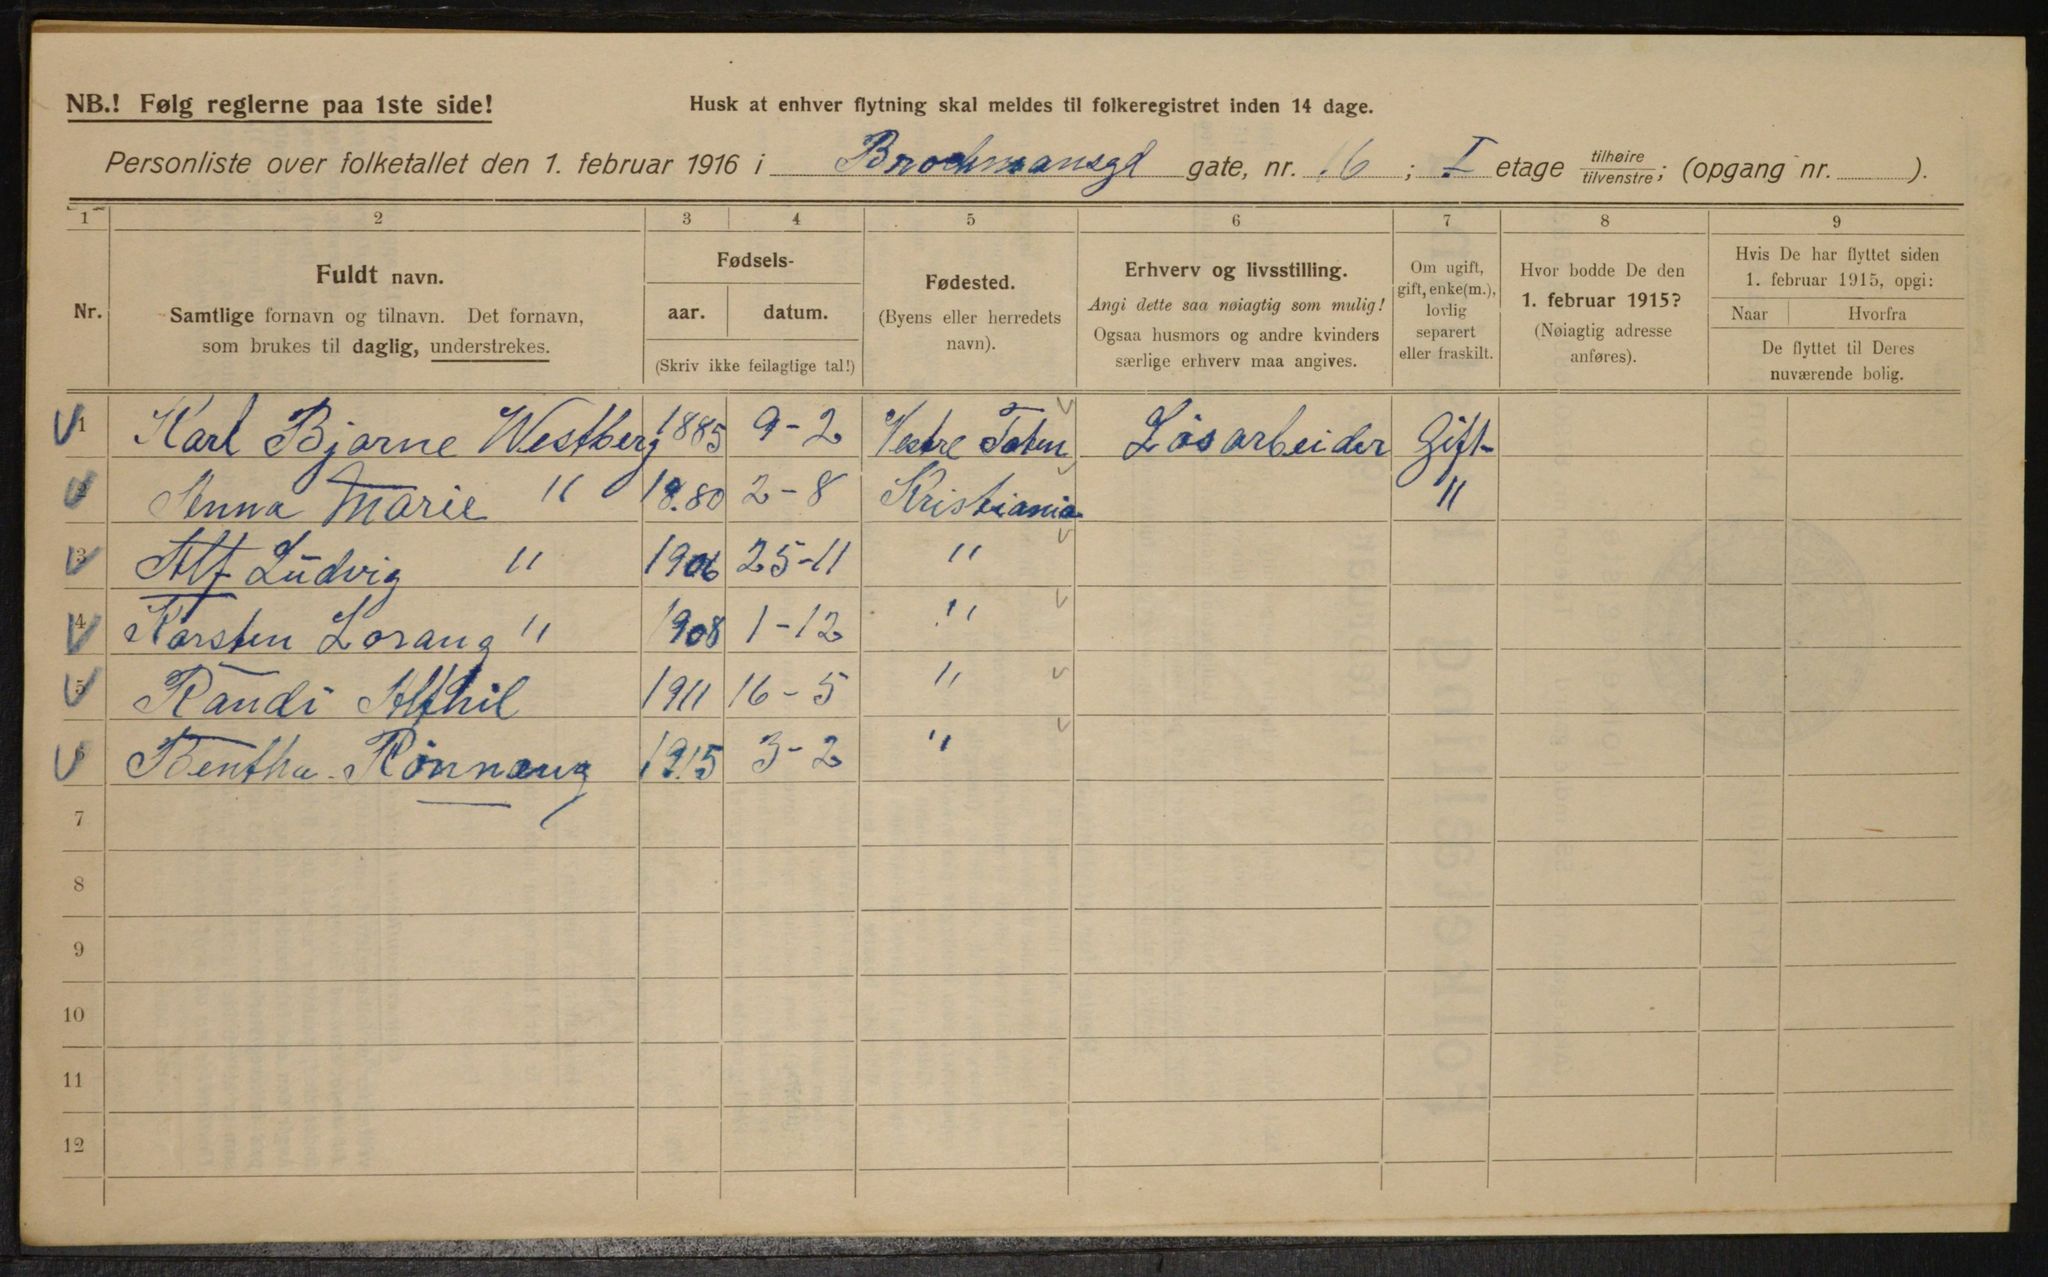 NB.! Følg reglerne paa 1ste side!
Husk at enhver flytning skal meldes til folkeregistret inden 14 dage.
Personliste over folketallet den 1. februar 1916 i Brochmansgd gate, nr. 16; I etage tilhøire/tilvenstre; (opgang nr. ).
1 2 3 4 5 6 7 8 9
Nr.
Fuldt navn.
Samtlige fornavn og tilnavn. Det fornavn,
som brukes til daglig, understrekes.
Fødsels-
aar. datum.
(Skriv ikke feilagtige tal!)
Fødested.
(Byens eller herredets
navn).
Erhverv og livsstilling.
Angi dette saa nøiagtig som mulig!
Ogsaa husmors og andre kvinders
særlige erhverv maa angives.
Om ugift,
gift, enke(m.),
lovlig
separert
eller fraskilt.
Hvor bodde De den
1. februar 1915?
(Nøiagtig adresse
anføres).
Hvis De har flyttet siden
1. februar 1915, opgi:
Naar Hvorfra
De flyttet til Deres
nuværende bolig.
1 Karl Bjarne Westberg 1885 9-2 Vestre Toten Løsarbeider Gift
2 Anna Marie " 1880 2-8 Kristiania "
3 Alf Ludvig " 1906 25-11 "
4 Karsten Lorang " 1908 1-12 "
5 Randi Alfhil 1911 16-5 "
6 Bentha Rønnaug 1915 3-2 "
7
8
9
10
11
12